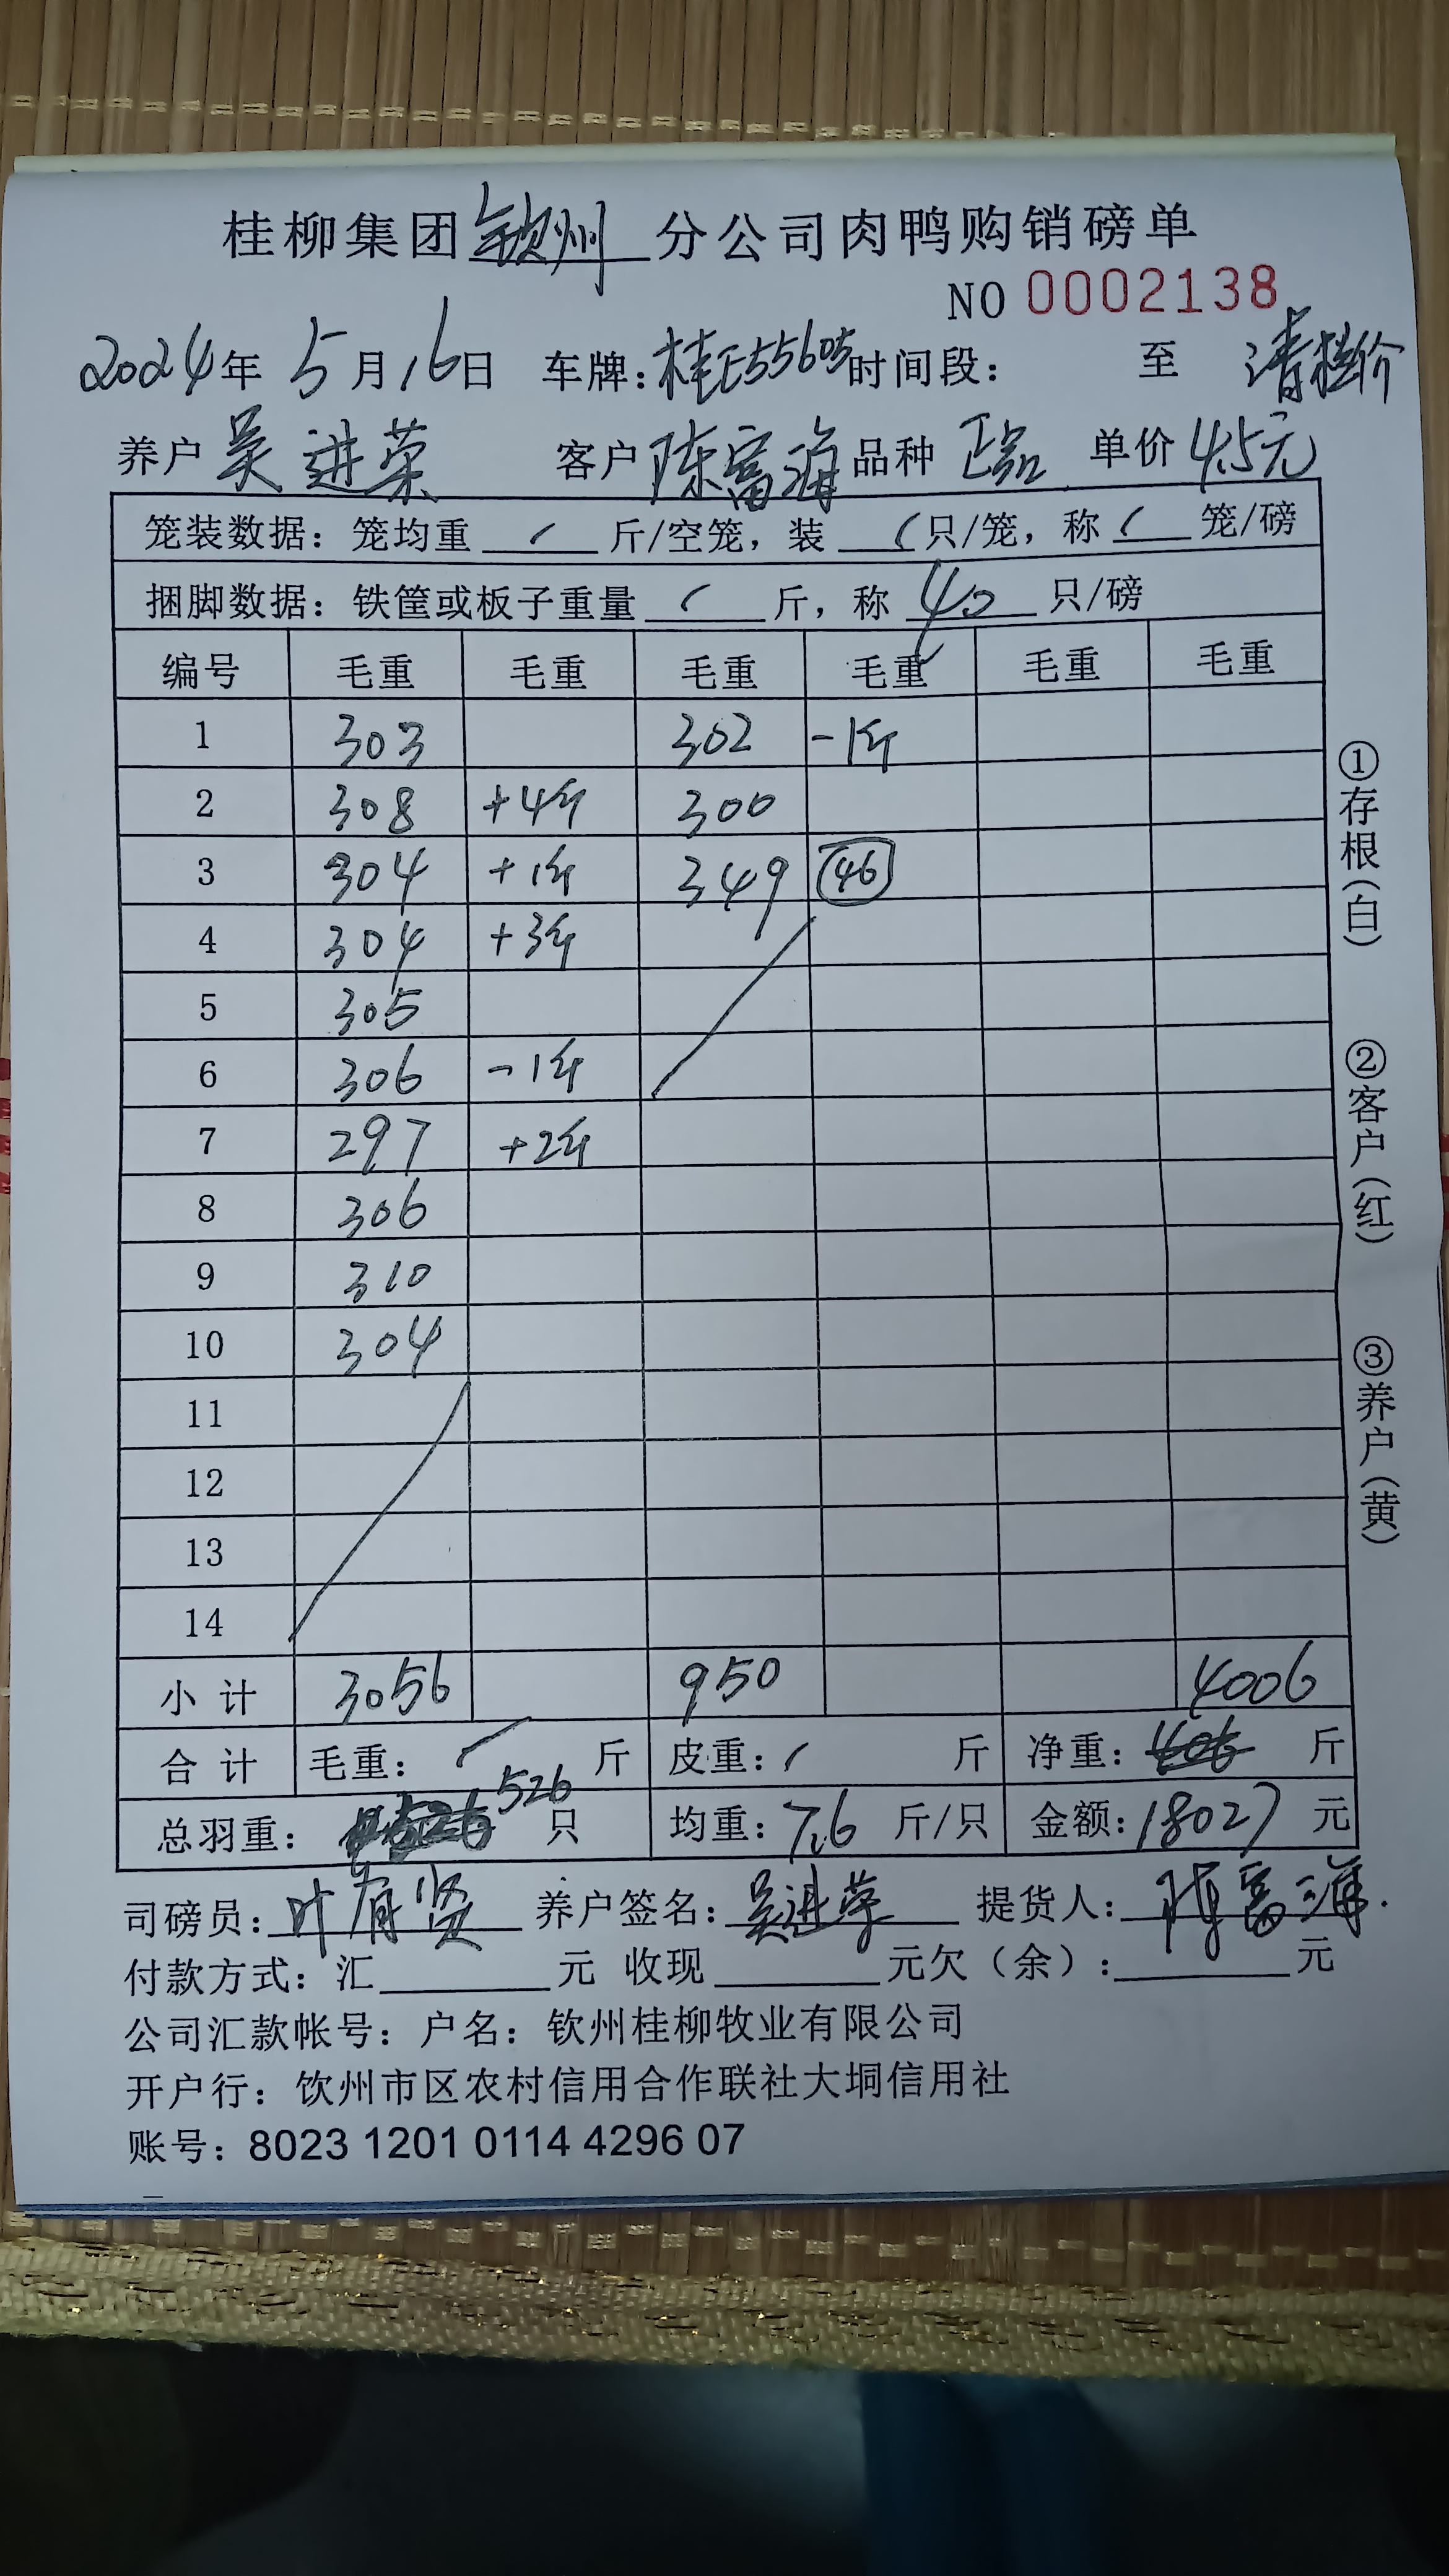 桂柳集团钦州分公司肉鸭购销磅单
NO 0002138
2024年5月16日 车牌:桂E55605时间段: 至 清栏价
养户 吴进荣 客户 陈富海 品种 单价 4.5元
笼装数据: 笼均重 / 斤/空笼, 装 / 只/笼, 称 / 笼/磅
捆脚数据: 铁筐或板子重量 / 斤, 称 40 只/磅
编号 毛重 毛重 毛重 毛重 毛重 毛重
1 303 302 -1斤
2 308 +4斤 300
3 304 +1斤 349 46
4 304 +3斤
5 305
6 306 -1斤
7 297 +2斤
8 306
9 310
10 304
11
12
13
14
小计 3056 950 4006
合计 毛重: / 斤 皮重: / 斤 净重: 斤
总羽重: 526 只 均重: 7.6 斤/只 金额: 18027 元
司磅员: 叶有贤 养户签名: 吴进荣 提货人: 陈富海.
付款方式: 汇 元 收现 元欠(余): 元
公司汇款帐号: 户名: 钦州桂柳牧业有限公司
开户行: 钦州市区农村信用合作联社大垌信用社
账号: 8023 1201 0114 4296 07
①存根(白)
②客户(红)
③养户(黄)